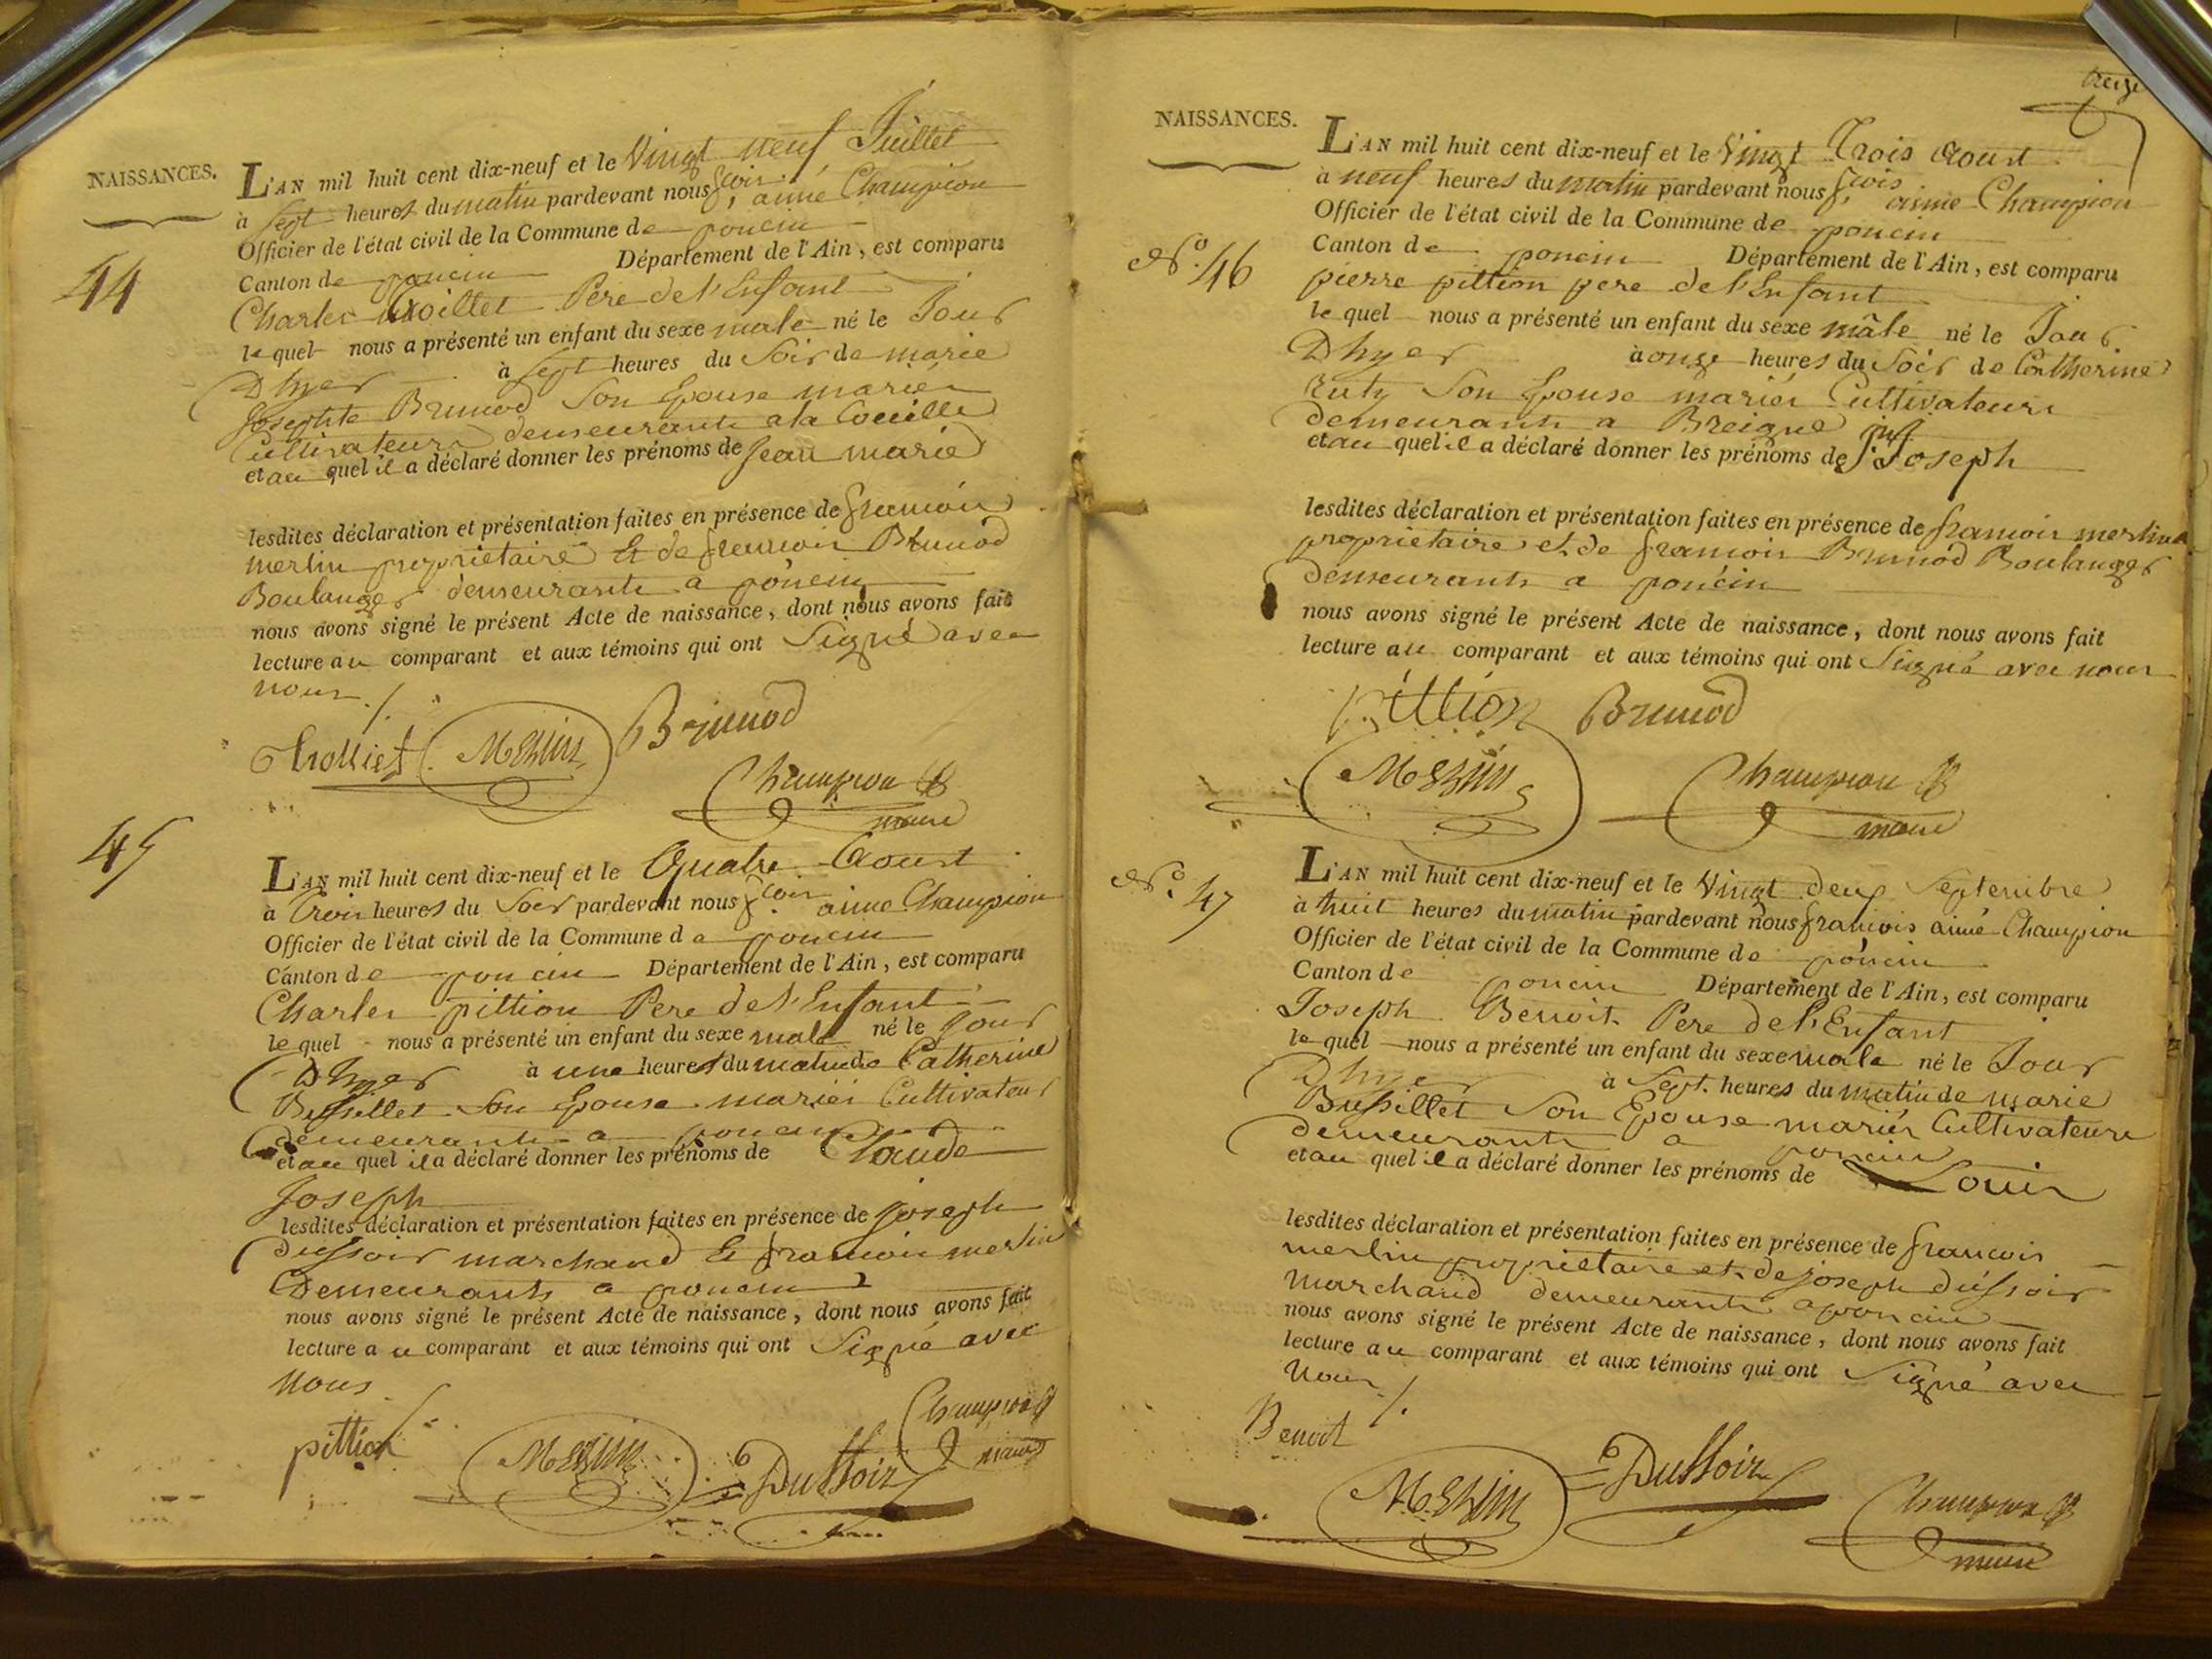 NAISSANCES.
L'AN mil huit cent dix-neuf et le Vingt neuf Juillet
à Sept heures du matin pardevant nous fcois aimé Champion
Officier de l'état civil de la Commune de poncin
Canton de poncin Département de l'Ain, est comparu
44
Charles Père de l'Enfant
lequel nous a présenté un enfant du sexe male né le Jour
Dhyer à Sept heures du Soir de marie
Josephte Brunod Son Epouse mariés
Cultivateurs demeurants a la
et au quel il a déclaré donner les prénoms de Jean marie
lesdites déclaration et présentation faites en présence de francois
merlin propriétaire Et de francois Brunod
Boulanger demeurants a poncin
nous avons signé le présent Acte de naissance, dont nous avons fait
lecture au comparant et aux témoins qui ont Signé avec
nous ./.
Merlin Brunod
Champion
maire
45
L'AN mil huit cent dix-neuf et le Quatre Aoust
à Trois heures du Soir pardevant nous fcois aimé Champion
Officier de l'état civil de la Commune de poncin
Canton de poncin Département de l'Ain, est comparu
Charles pittion Pere de l'Enfant
lequel nous a présenté un enfant du sexe male né le Jour
Dhyer à une heures du matin de Catherine
Bussillet Son Epouse mariés Cultivateurs
demeurants a poncin
et au quel il a déclaré donner les prénoms de Claude
Joseph
lesdites déclaration et présentation faites en présence de joseph
dussoir marchand Et francois merlin
Demeurants a poncin
nous avons signé le présent Acte de naissance, dont nous avons fait
lecture au comparant et aux témoins qui ont Signé avec
nous ./.
pittion Merlin Dussoir Champion
maire
treize
NAISSANCES.
L'AN mil huit cent dix-neuf et le Vingt Trois Aoust
à neuf heures du matin pardevant nous fcois aimé Champion
Officier de l'état civil de la Commune de poncin
No. 46
Canton de poncin Département de l'Ain, est comparu
pierre pittion pere de l'Enfant
lequel nous a présenté un enfant du sexe mâle né le Jour
Dhyer à onze heures du Soir de Catherine
Cuty Son Epouse mariés Cultivateurs
demeurants a Breigne
et au quel il a déclaré donner les prénoms de Joseph
lesdites déclaration et présentation faites en présence de francois merlin
propriétaire et de francois Brunod Boulanger
demeurants a poncin
nous avons signé le présent Acte de naissance, dont nous avons fait
lecture au comparant et aux témoins qui ont Signé avec nous
pittion Brunod
Merlin Champion
maire
No. 47
L'AN mil huit cent dix-neuf et le Vingt deux Septembre
à huit heures du matin pardevant nous francois aimé Champion
Officier de l'état civil de la Commune de poncin
Canton de poncin Département de l'Ain, est comparu
Joseph Benoit Pere de l'Enfant
lequel nous a présenté un enfant du sexe male né le Jour
Dhyer à Sept heures du matin de marie
Bussillet Son Epouse mariés Cultivateurs
demeurants a poncin
et au quel il a déclaré donner les prénoms de Louis
lesdites déclaration et présentation faites en présence de francois
merlin propriétaire et de joseph dussoir
marchand demeurants a poncin
nous avons signé le présent Acte de naissance, dont nous avons fait
lecture au comparant et aux témoins qui ont Signé avec
nous ./.
Benoit
Merlin Dussoir Champion
maire